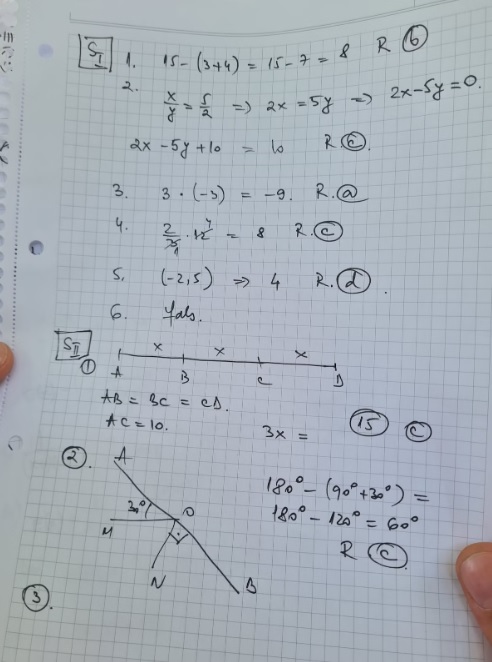 S I
1. 15 - (3+4) = 15 - 7 = 8 R (b)
2. x/y = 5/2 => 2x = 5y => 2x-5y=0.
2x - 5y + 10 = 10 R (c).
3. 3 · (-3) = -9. R. (a)
4. 2/3 · 12 = 8 R. (c)
5. (-2,5) => 4 R. (d).
6. Fals.
S II
1 x x x
A B C D
AB = BC = CD.
AC = 10.
3x = 15 (c)
2. A
30° O
M
N B
180° - (90° + 30°) =
180° - 120° = 60°
R (c).
3.